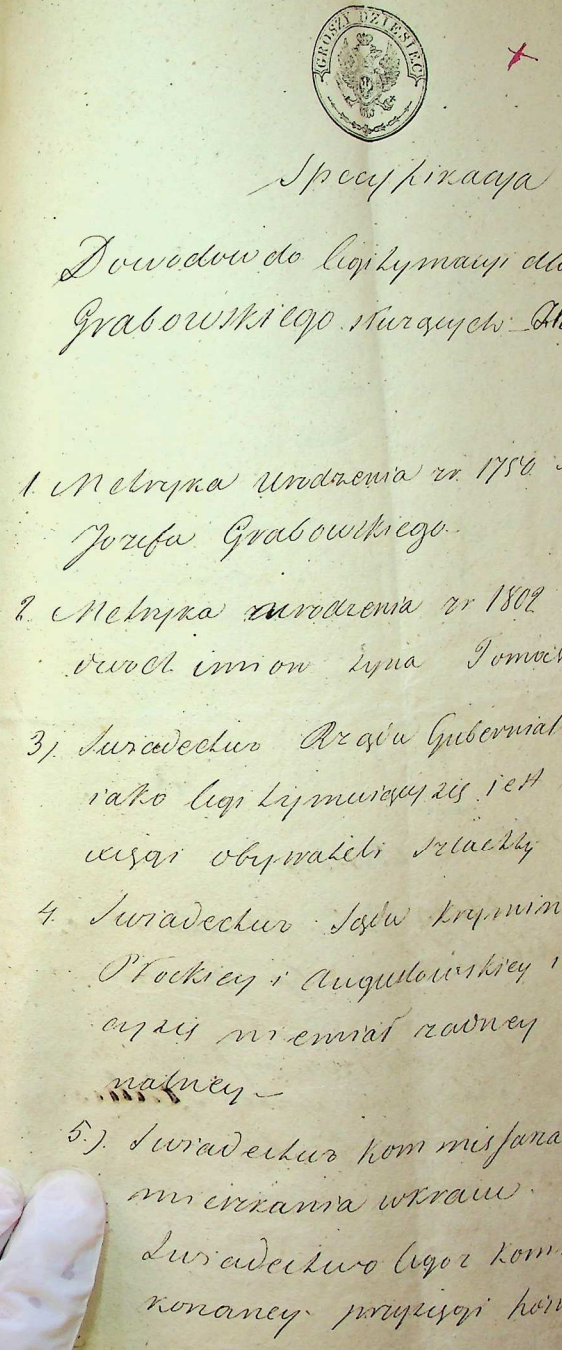 GROSZY DZIESIĘĆ
Specyfikacja
Dowodow do legitymacyi dla
Grabowskiego służących
1. Metryka urodzenia z r. 1750
Jozefa Grabowskiego
2. Metryka urodzenia z r 1802
dwoch imion syna Tomasz
3). Swiadectwo Rządu Gubernial
iako legitymuiący się iest
xięgi obywateli szlachty
4. Swiadectwo Sądu Krymin
Płockiey i Augustowskiey i
cy się niemiał zadney
nalney
5.) Swiadectwo Kommissarza
mieszkania wkraiu
Swiadectwo tegoz Kom
konaney przysięgi hom